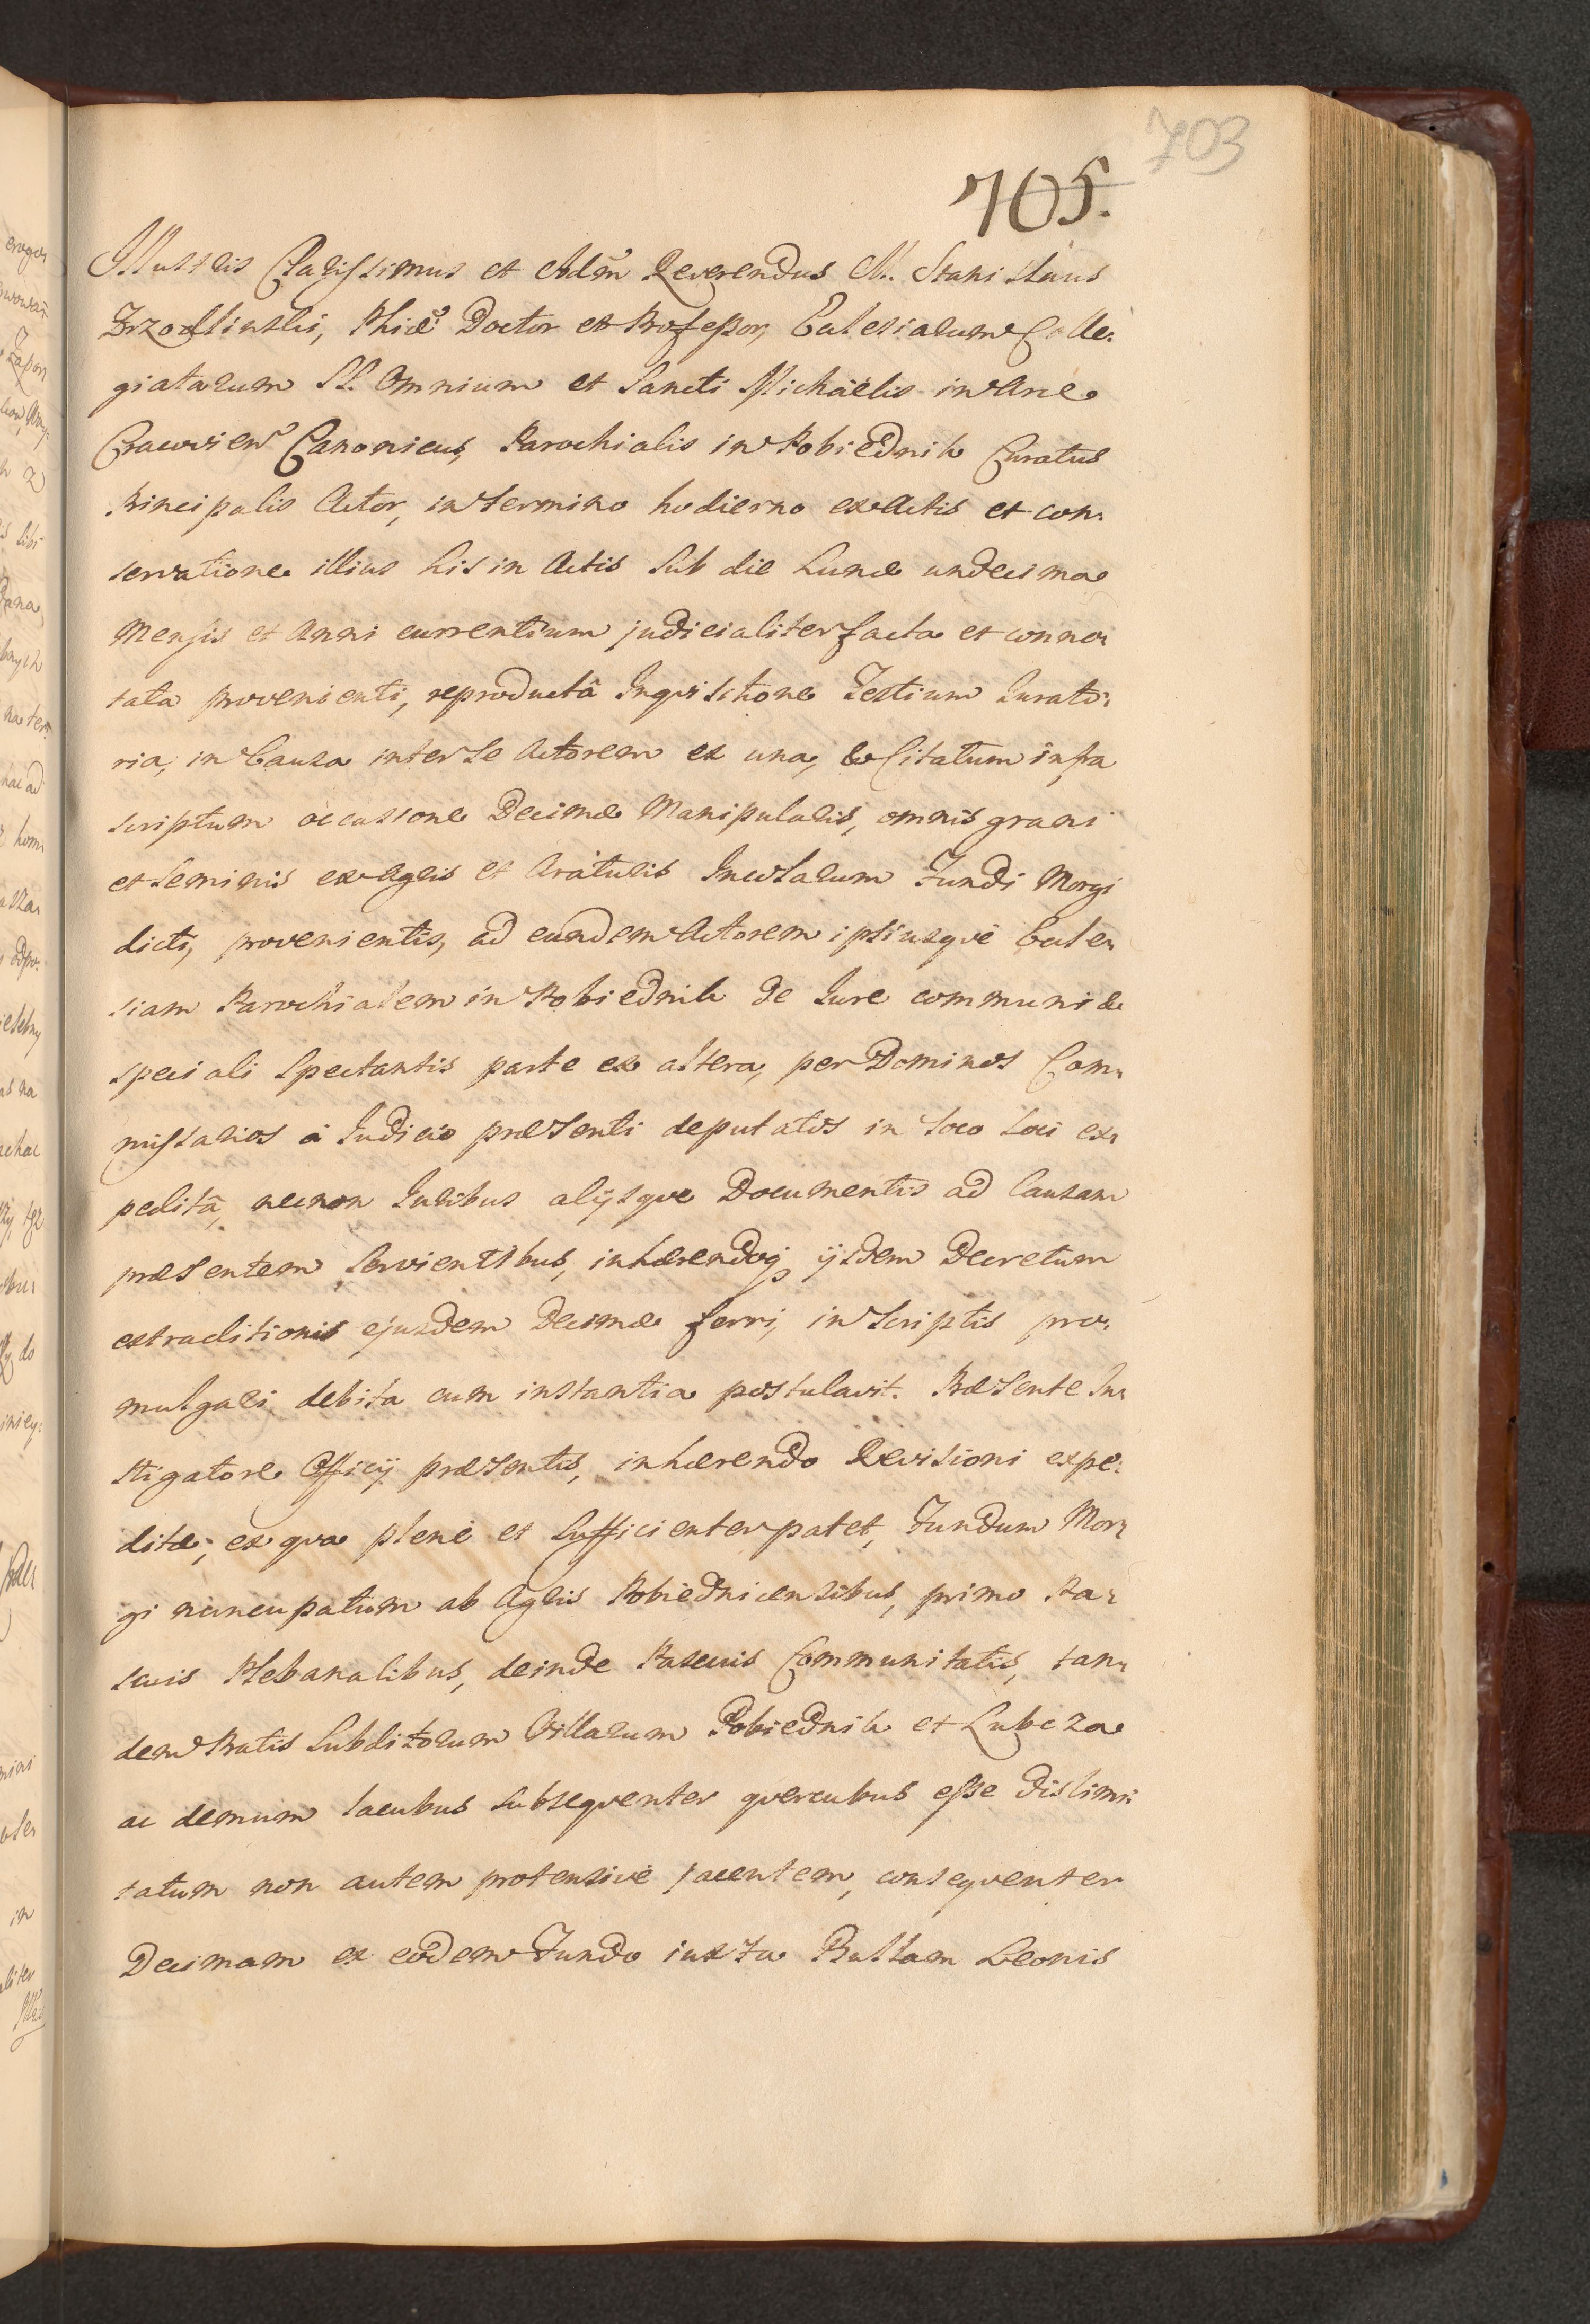 703
705.
Illustris Clarissimus et Adm̃ Reverendus M. Stanislaus
Phiæ Doctor et Professor, Ecclesiarum Colle:
giatarum SS. Omnium et Sancti Michaëlis in Arce
Cracovien̄ Canonicus, Parochialis in Pobiednik Curatus
Principalis Actor, in termino hodierno ex Actis et con:
servatione illius his in Actis sub die Lunæ undecima
Mensis et Anni currentium judicialiter facta et conno:
tata provenienti, reproductâ Inqvisitione Testium Iurato:
ria, in Causa inter se Actorem ex una, & Citatum infra
scriptum occasione Decimæ Manipularis, omnis grani
et seminis ex Agris et Araturis Incolarum Fundi Morgi
dicti, provenientis, ad eundem Actorem ipsiusqve Eccle:
siam Parochialem in Pobiednik de Iure communi &
speciali spectantis parte ex altera, per Dominos Com:
missarios à Iudicio præsenti deputatos in loco loci ex:
peditâ, necnon Iuribus alijsqve Documentis ad Causam
præsentem servientibus, inhærendoq; ijsdem Decretum
extraditionis ejusdem Decimæ ferri, in scriptis pro:
mulgari debita cum instantia postulavit. Præsente In:
stigatore Officij præsentis, inhærendo Revisioni expe:
ditæ; ex qva plenè et sufficienter patet, Fundum Mor:
gi nuncupatum ab Agris Pobiednicensibus, primo Pa:
scuis Plebanalibus, deinde Pascuis Communitatis, tan:
dem Pratis Subditorum Villarum Pobiednik et Lubcza
ac demum lacubus subseqventer qvercubus esse dislimi:
tatum non autem protensivè jacentem, conseqventer
Decimam ex eôdem Fundo iuxta Bullam Leonis